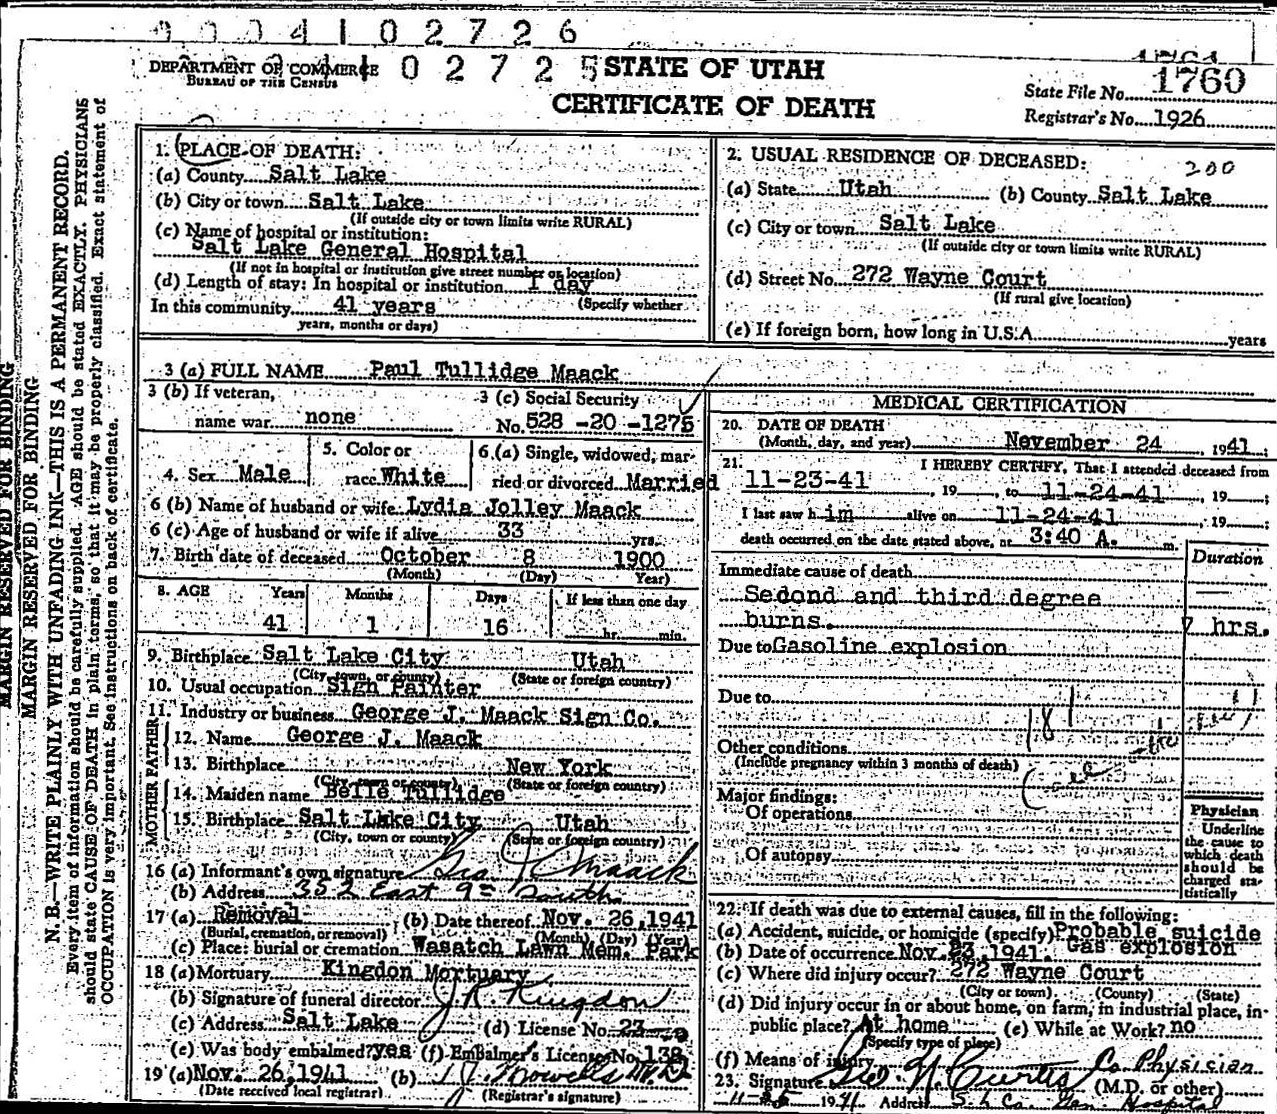 0004102726
DEPARTMENT OF COMMERCE
BUREAU OF THE CENSUS
02725
STATE OF UTAH
CERTIFICATE OF DEATH
State File No. 1760
Registrar's No. 1926
MARGIN RESERVED FOR BINDING
MARGIN RESERVED FOR BINDING
N. B.—WRITE PLAINLY WITH UNFADING INK—THIS IS A PERMANENT RECORD.
Every item of information should be carefully supplied. AGE should be stated EXACTLY. PHYSICIANS
should state CAUSE OF DEATH in plain terms, so that it may be properly classified. Exact statement of
OCCUPATION is very important. See instructions on back of certificate.
1. PLACE OF DEATH:
(a) County Salt Lake
(b) City or town Salt Lake
(If outside city or town limits write RURAL)
(c) Name of hospital or institution:
Salt Lake General Hospital
(If not in hospital or institution give street number or location)
(d) Length of stay: In hospital or institution 1 day
(Specify whether
In this community 41 years
years, months or days)
2. USUAL RESIDENCE OF DECEASED: 200
(a) State Utah (b) County Salt Lake
(c) City or town Salt Lake
(If outside city or town limits write RURAL)
(d) Street No. 272 Wayne Court
(If rural give location)
(e) If foreign born, how long in U.S.A. years
3 (a) FULL NAME Paul Tullidge Maack
3 (b) If veteran,
name war none
3 (c) Social Security
No. 528 -20 -1275
4. Sex Male
5. Color or
race White
6.(a) Single, widowed, mar-
ried or divorced Married
6 (b) Name of husband or wife Lydia Jolley Maack
6 (c) Age of husband or wife if alive 33 yrs.
7. Birth date of deceased October 8 1900
(Month) (Day) Year)
8. AGE Years Months Days If less than one day
41 1 16 hr. min.
9. Birthplace Salt Lake City Utah
(City, town, or county) (State or foreign country)
10. Usual occupation Sign Painter
11. Industry or business George J. Maack Sign Co.
FATHER
12. Name George J. Maack
13. Birthplace New York
(City, town or county) (State or foreign country)
MOTHER
14. Maiden name Belle Tullidge
15. Birthplace Salt Lake City Utah
(City, town or county) (State or foreign country)
16 (a) Informant's own signature Geo J Maack
(b) Address 352 East 9th South
17 (a) Removal (b) Date thereof Nov. 26,1941
(Burial, cremation, or removal) (Month) (Day) (Year)
(c) Place: burial or cremation Wasatch Lawn Mem. Park
18 (a) Mortuary Kingdon Mortuary
(b) Signature of funeral director J R Kingdon
(c) Address Salt Lake (d) License No. 23
(e) Was body embalmed? yes (f) Embalmer's License No. 138
19 (a) Nov. 26,1941 (b)
(Date received local registrar) (Registrar's signature)
MEDICAL CERTIFICATION
20. DATE OF DEATH
(Month, day, and year) November 24 , 1941;
21. I HEREBY CERTIFY, That I attended deceased from
11-23-41 , 19 , to 11-24-41 , 19 ;
I last saw h im alive on 11-24-41 , 19 ;
death occurred on the date stated above, at 3:40 A. m.
Duration
Immediate cause of death
Second and third degree
burns. 7 hrs.
Due to Gasoline explosion
Due to
181
Other conditions
(Include pregnancy within 3 months of death)
Major findings:
Of operations
Of autopsy
Physician
Underline
the cause to
which death
should be
charged sta-
tistically
22. If death was due to external causes, fill in the following:
(a) Accident, suicide, or homicide (specify) Probable suicide
(b) Date of occurrence Nov. 23, 1941. Gas explosion
(c) Where did injury occur? 272 Wayne Court
(City or town) (County) (State)
(d) Did injury occur in or about home, on farm, in industrial place, in-
public place? At home (e) While at Work? no
(Specify type of place)
(f) Means of injury
23. Signature Geo. N. Curtis Co. Physician
(M.D. or other)
11-25 1941 Address S. L. Co. Gen. Hospital